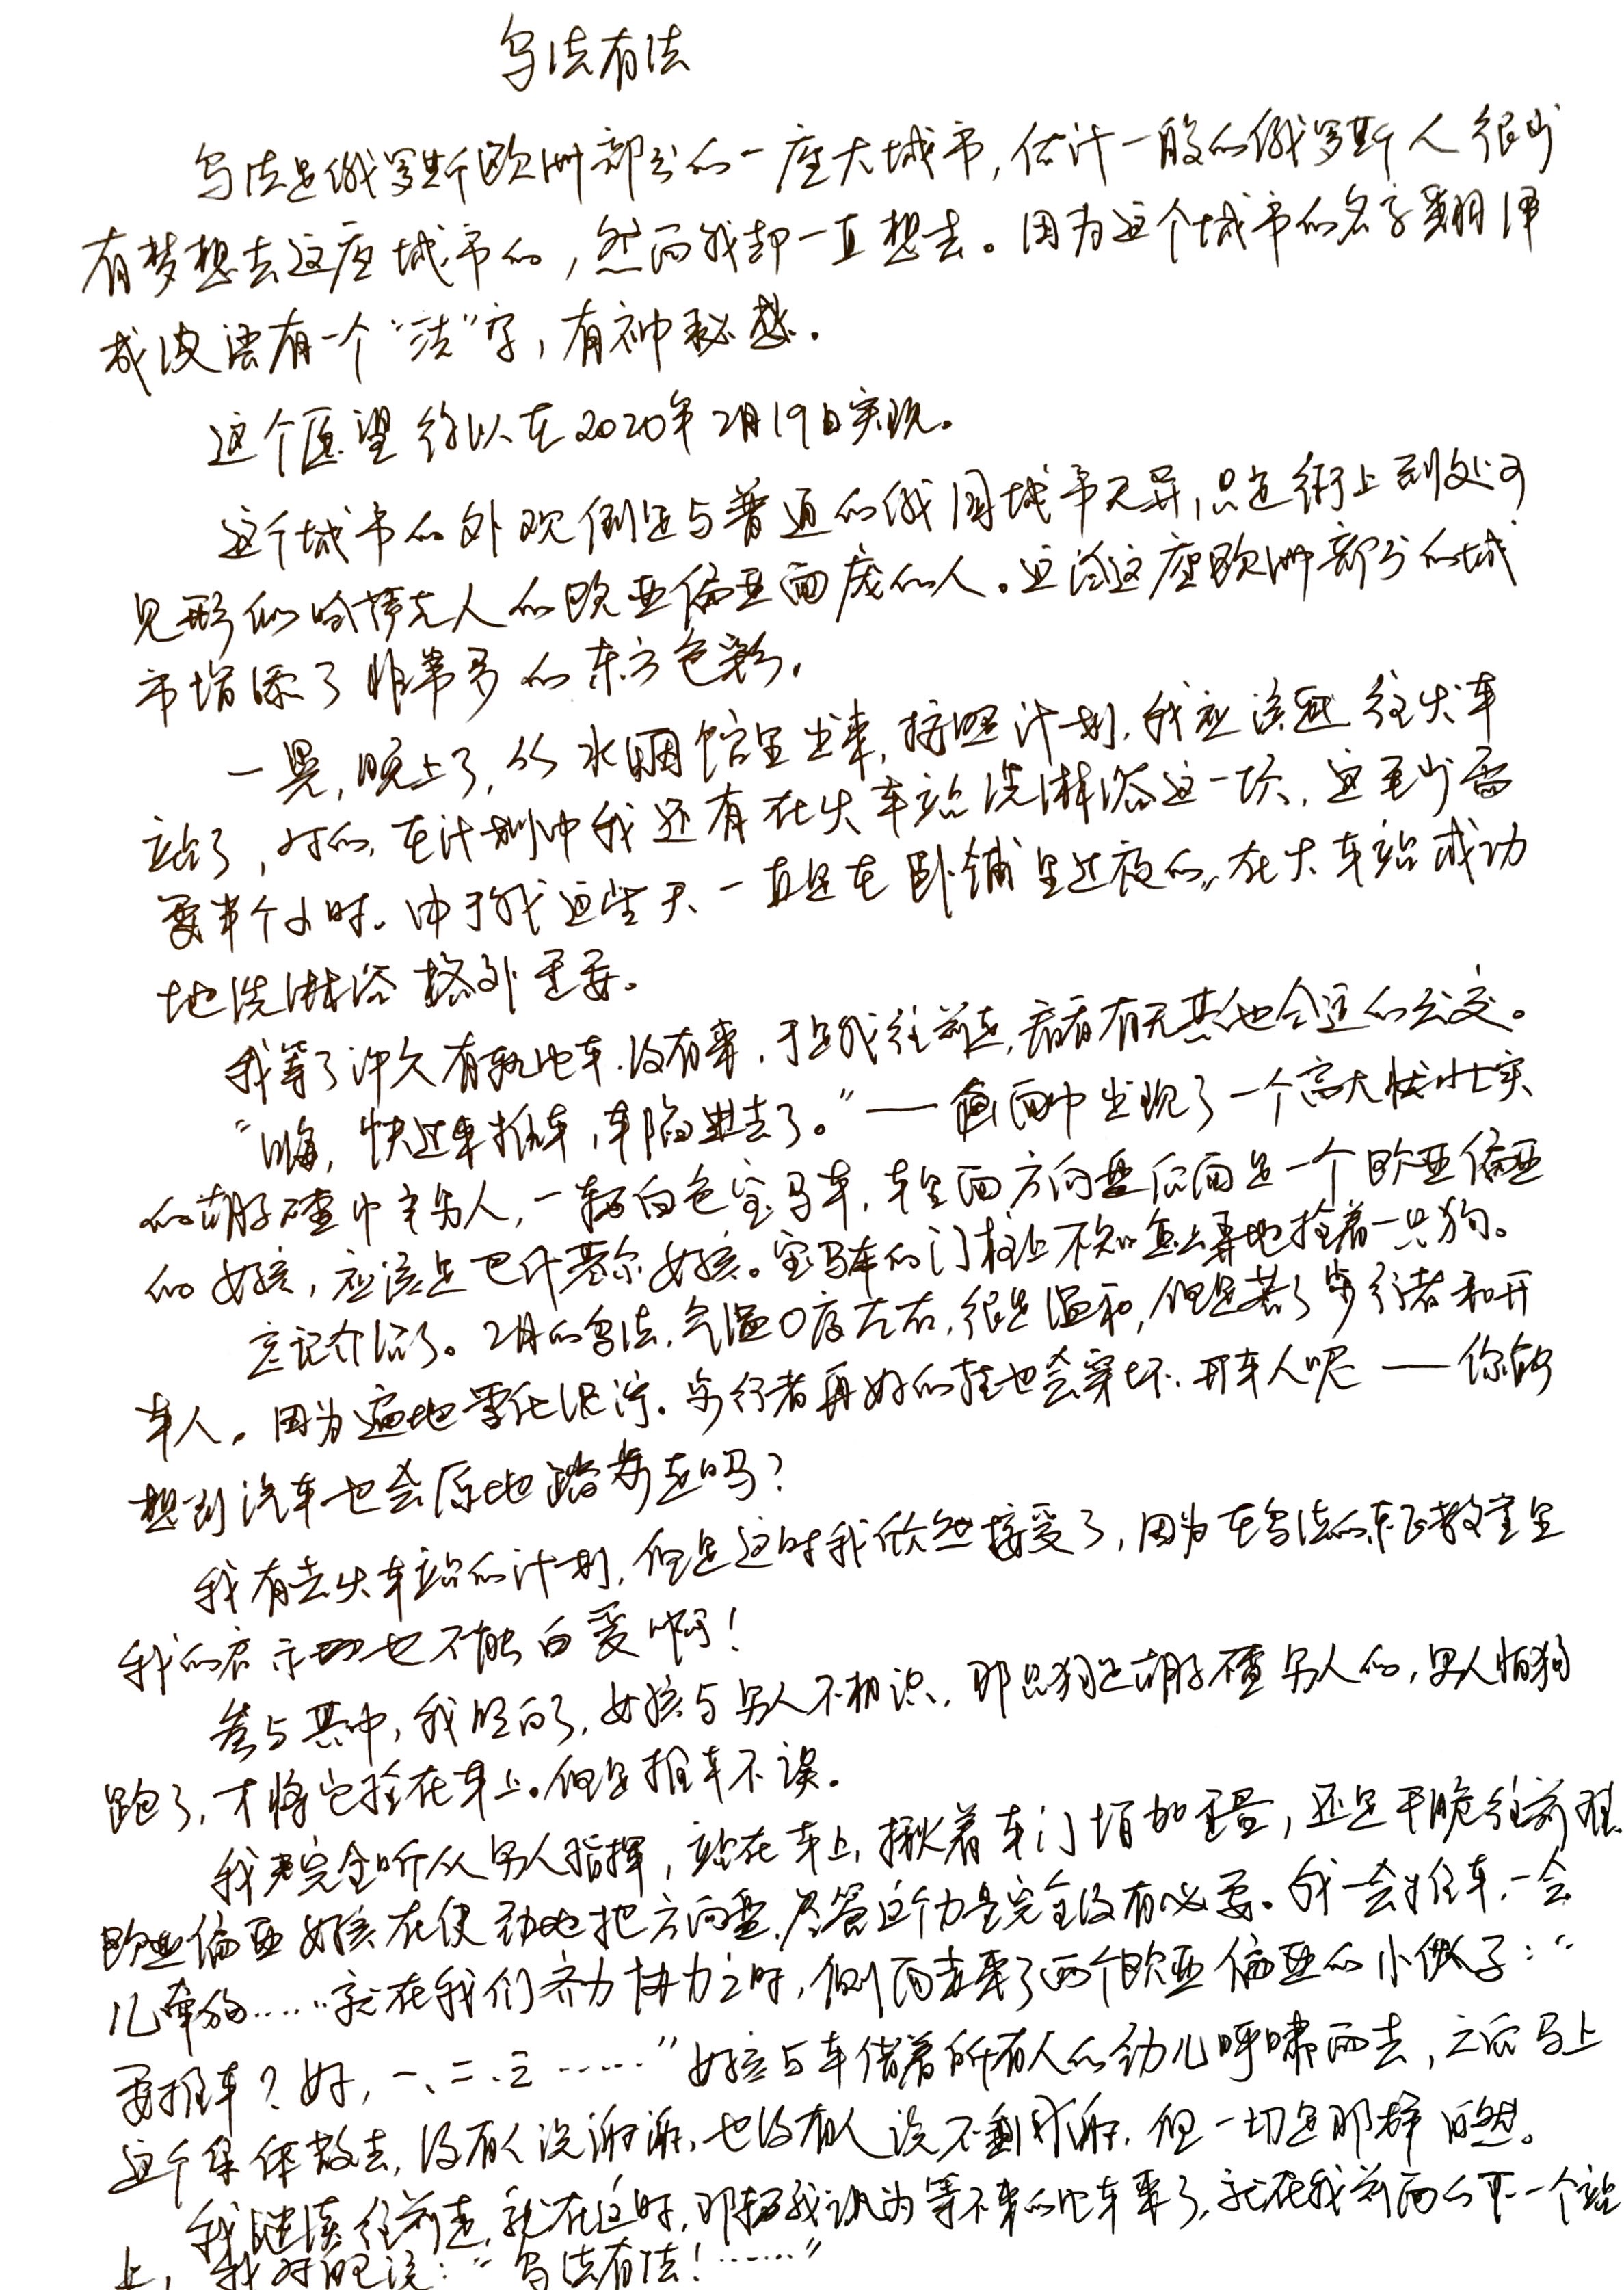 乌法有法
乌法是俄罗斯欧洲部分的一座大城市,估计一般的俄罗斯人很少
有梦想去这座城市的,然而我却一直想去。因为这个城市的名字翻译
成汉语有一个“法”字,有神秘感.
这个愿望得以在2020年2月19日实现。
这个城市的外观倒是与普通的俄国城市无异,只是街上到处可
见形似哈萨克人的欧亚偏亚面庞的人。这给这座欧洲部分的城
市增添了非常多的东方色彩。
一晃,晚上了,从水族馆里出来,按照计划,我应该赶往火车
站了,对的,在计划中我还有在火车站洗淋浴这一项,这至少需
要半个小时。由于我这些天一直是在卧铺里过夜的,在火车站成功
地洗淋浴格外重要。
我等了许久有轨电车.没有来,于是我往前走,看看有无其他合适的公交。
“嗨,快过来推车,车陷进去了。”——画面中出现了一个高大壮实
的胡子碴中年男人,一辆白色宝马车,车里面方向盘后面是一个欧亚偏亚
的女孩,应该是巴什基尔女孩。宝马车的门柱上不知怎么弄地拴着一只狗。
忘记介绍了。2月的乌法,气温0度左右,很是温和,但是苦了步行者和开
车人。因为遍地雪化泥泞.步行者再好的鞋也会穿坏、开车人呢——你能
想到汽车也会原地踏步走吗?
我有去火车站的计划,但是这时我欣然接受了,因为在乌法的东正教堂里
我的启示也不能白受啊!
参与其中,我明白了,女孩与男人不相识、那只狗是胡子碴男人的,男人怕狗
跑了,才将它拴在车上。但是推车不误。
我完全听从男人指挥,站在车上,揪着车门增加重量,还是干脆往前推.
欧亚偏亚女孩在使劲地把方向盘,尽管这个力是完全没有必要。我一会推车,一会
儿牵狗……就在我们齐力协力之时,侧面走来了两个欧亚偏亚的小伙子:“
要推车?好,一、二、三……”女孩与车借着所有人的劲儿呼啸而去,之后马上
这个集体散去,没有人说谢谢、也没有人说不剩谢,但一切是那样自然。
我继续往前走,就在这时,那辆我认为等不来的电车来了,就在我前面的下一个站
上,我对自己说:“乌法有法!……”